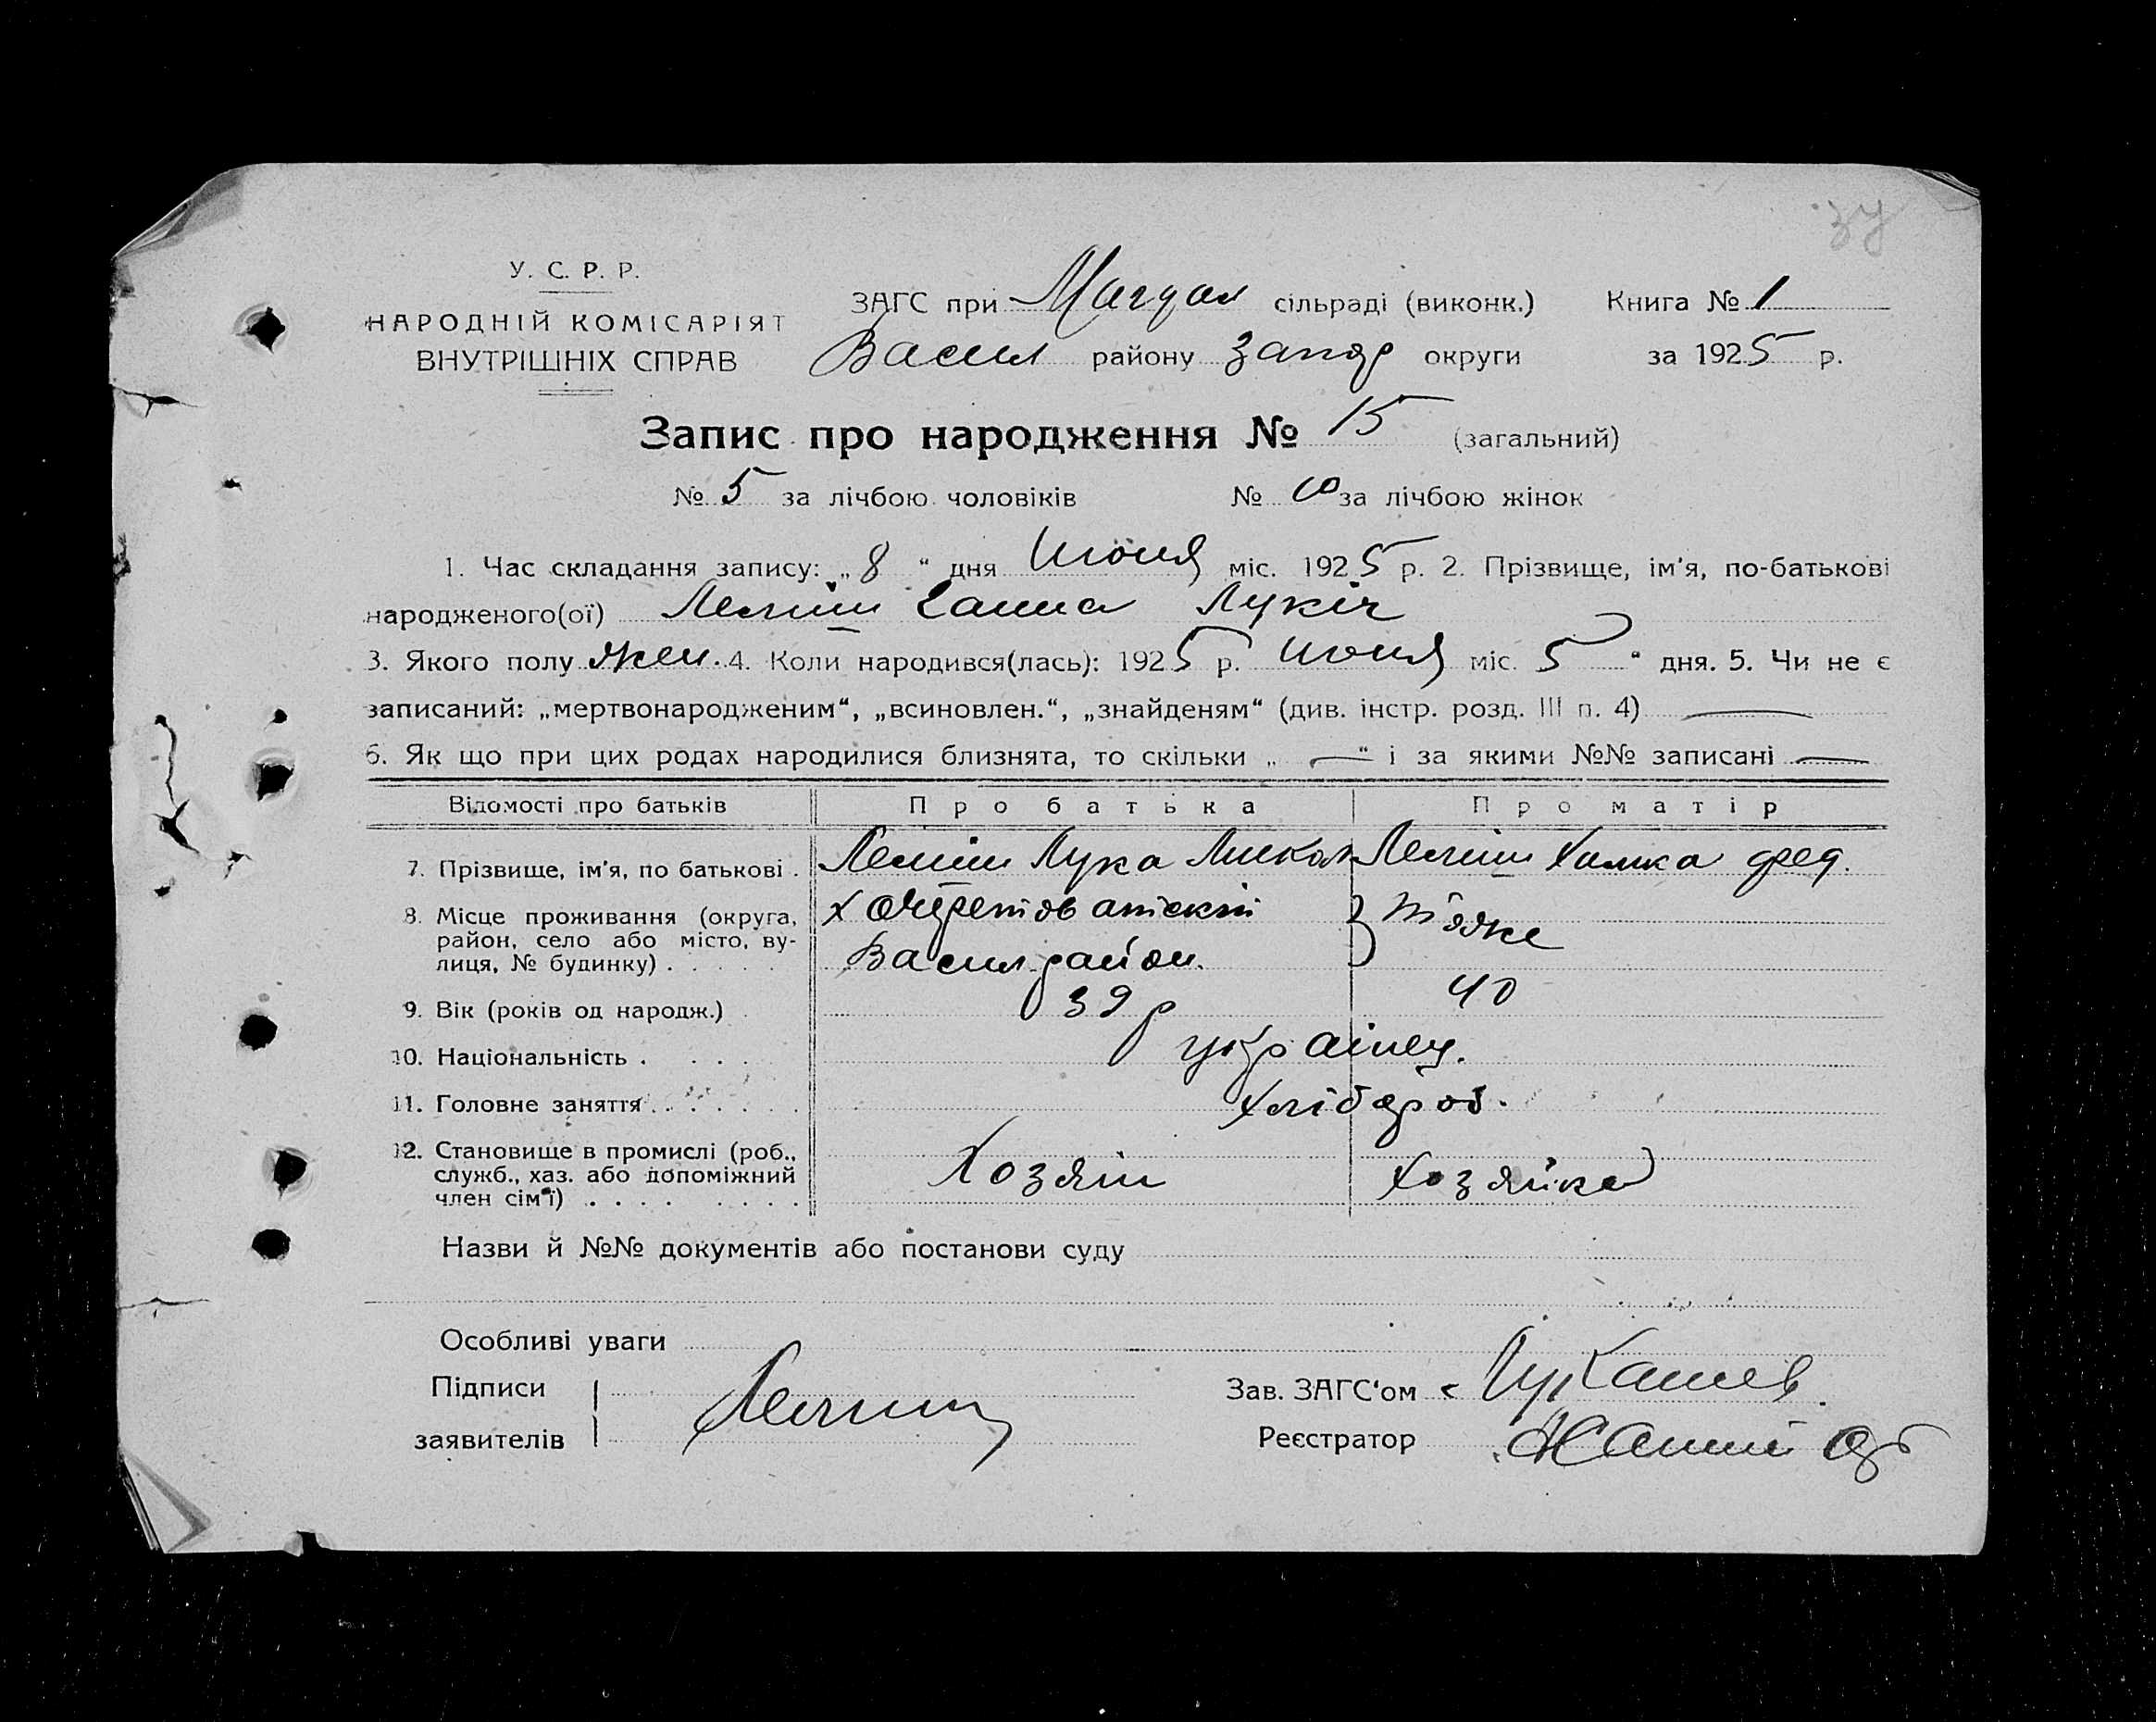 34
У. С. Р. Р.
НАРОДНІЙ КОМІСАРІЯТ
ВНУТРІШНІХ СПРАВ
ЗАГС при Магдал сільраді (виконк.) Книга № 1
Васил району Запор округи за 1925 р.
Запис про народження № 15 (загальний)
№ 5 за лічбою чоловіків № 10 за лічбою жінок
1. Час складання запису: „8“ дня Июня міс. 1925 р. 2. Прізвище, ім'я, по-батькові
народженого(ої) Лемпіш Ганна Лукіч
3. Якого полу жен. 4. Коли народився(лась): 1925 р. Июня міс. 5“ дня. 5. Чи не є
записаний: „мертвонародженим“, „всиновлен.“, „знайденям“ (див. інстр. розд. III п. 4) —
6. Як що при цих родах народилися близнята, то скільки „—“ і за якими №№ записані —
Відомості про батьків Про батька Про матір
7. Прізвище, ім'я, по батькові . Лука Химка фед.
8. Місце проживання (округа,
район, село або місто, ву-
лиця, № будинку) . . . . . Васил район. } т'яже
9. Вік (років од народж.) . 39 р 40
10. Національність . . . . українц.
11. Головне заняття . . . . . . хлібороб.
12. Становище в промислі (роб.,
служб., хаз. або допоміжний
член сім'ї) . . . . . . . . Хозяїн хозяйка
Назви й №№ документів або постанови суду
Особливі уваги
Підписи
заявителів
Зав. ЗАГС'ом Лукашев
Реєстратор